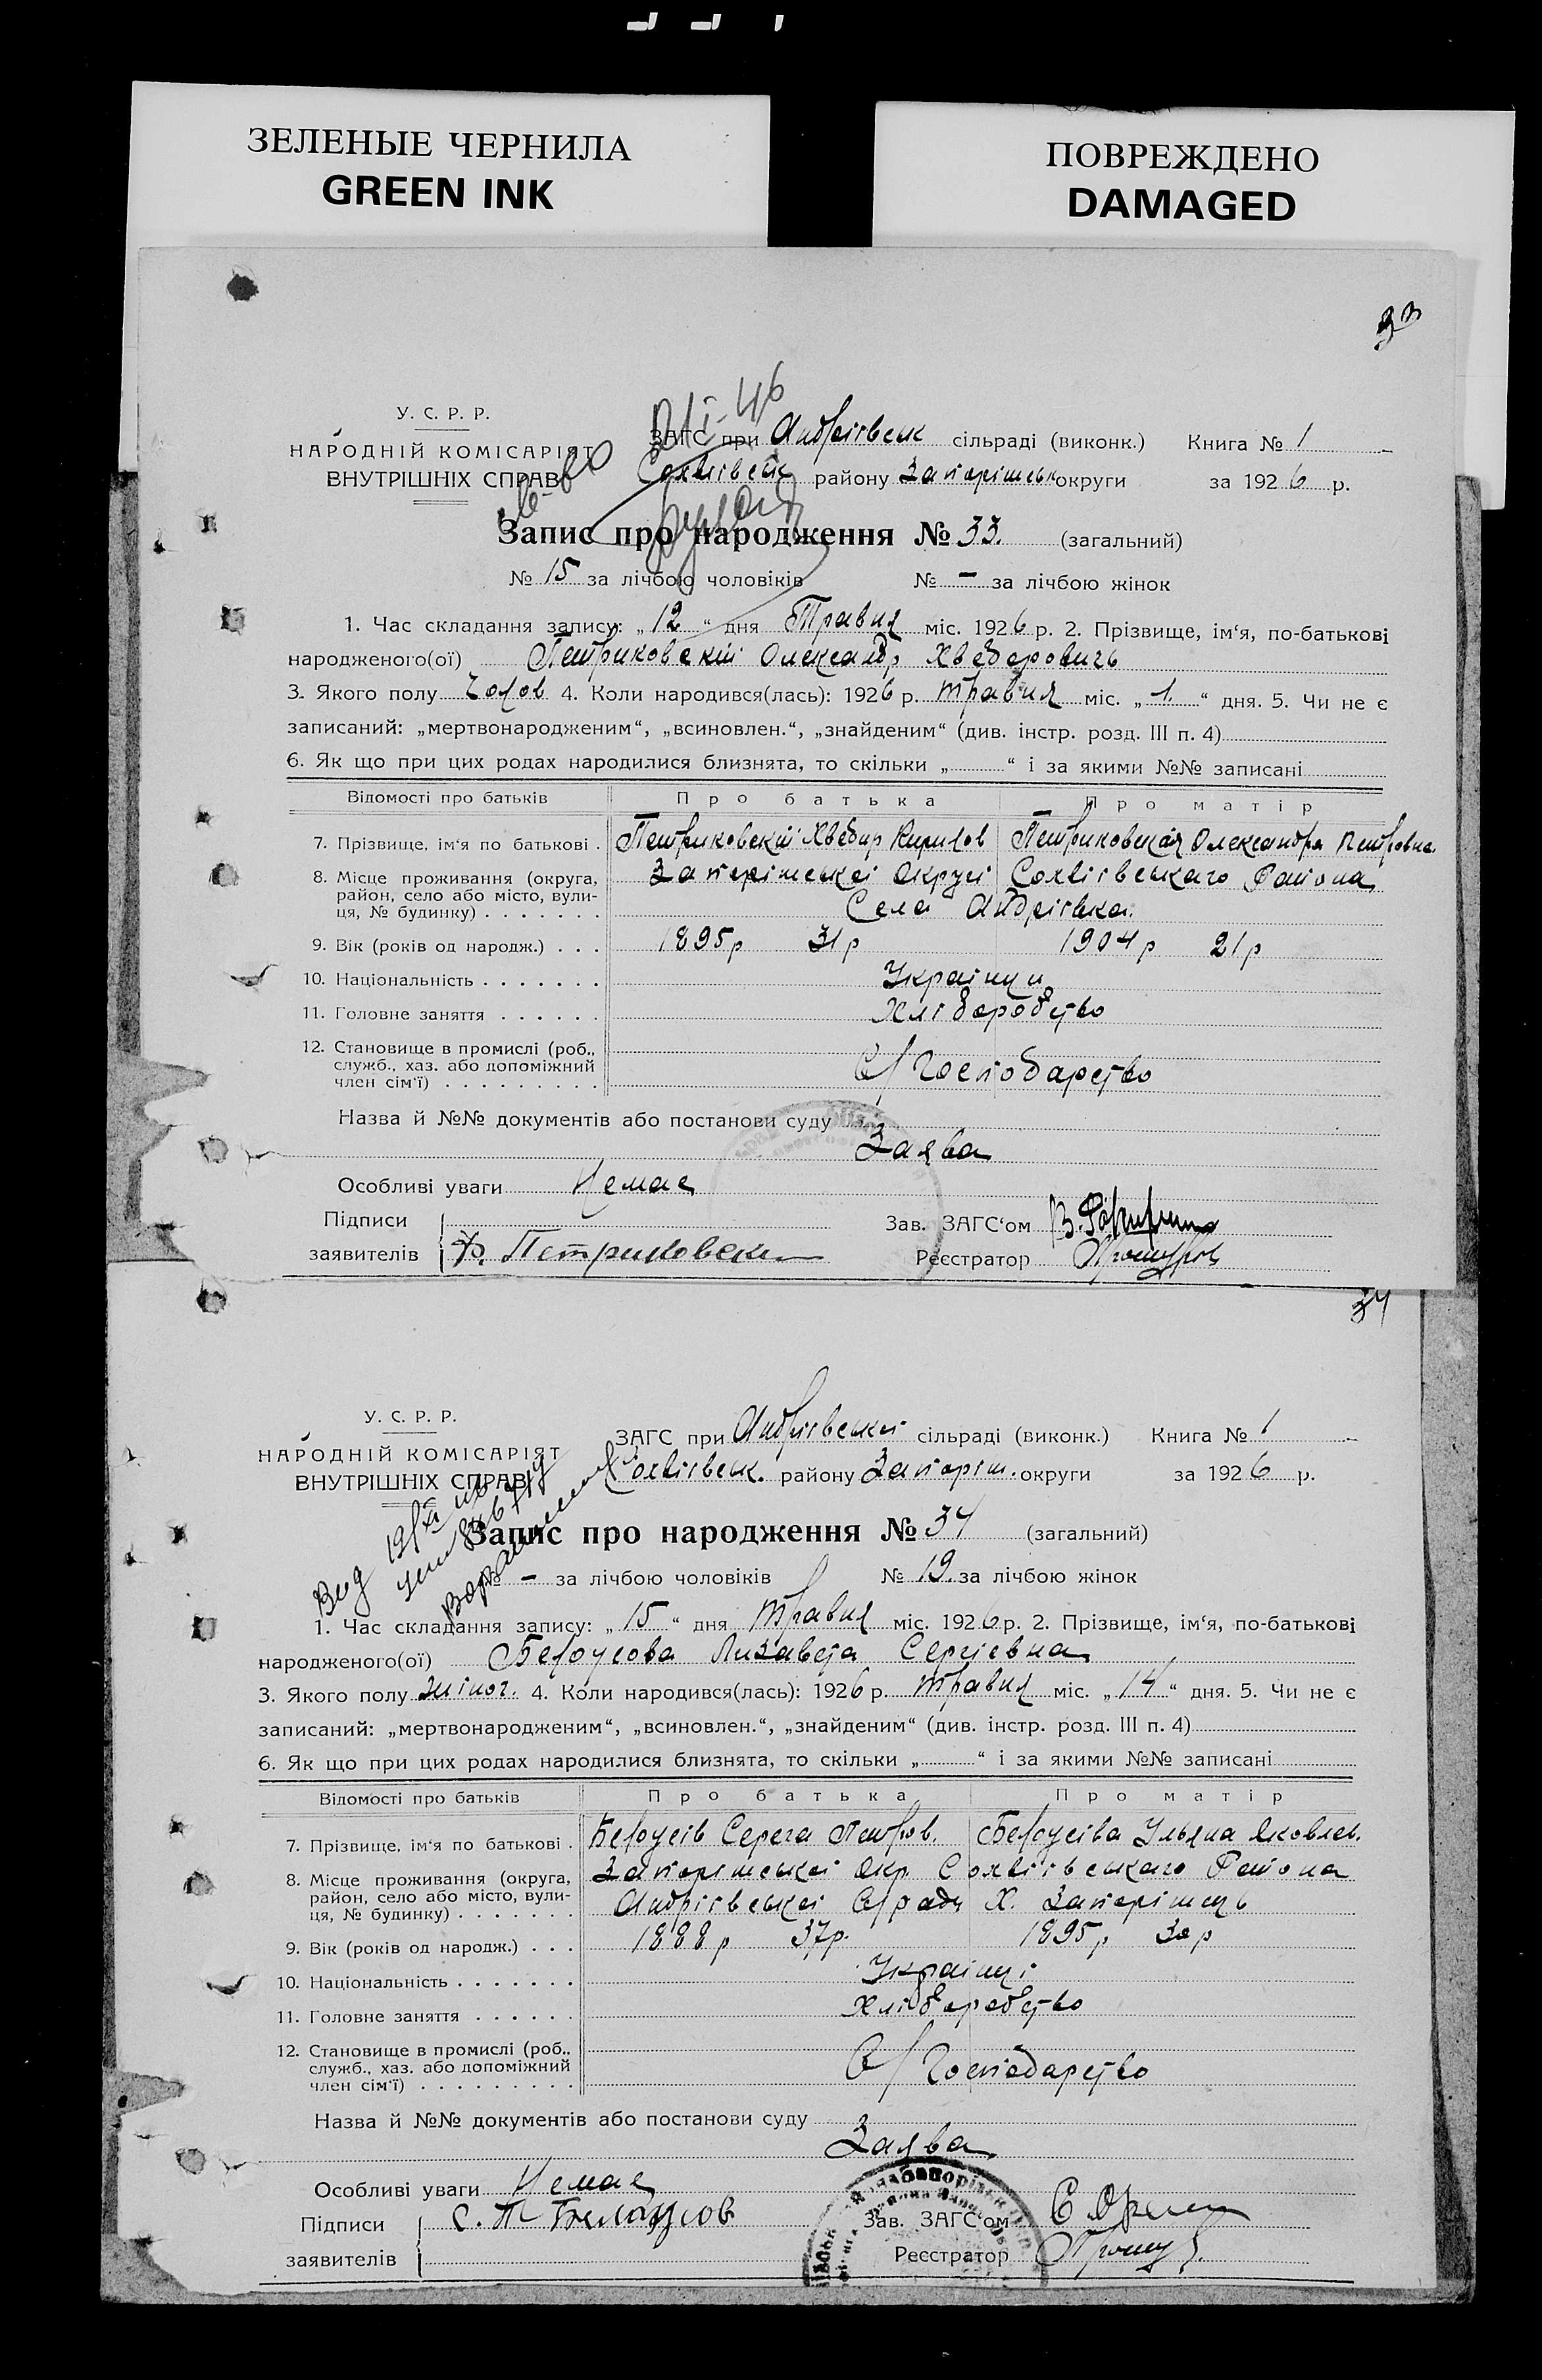 ЗЕЛЕНЫЕ ЧЕРНИЛА
GREEN INK
ПОВРЕЖДЕНО
DAMAGED
33
У. С. Р. Р.
НАРОДНІЙ КОМІСАРІЯТ
ВНУТРІШНІХ СПРАВ
ЗАГС при Андріівськ сільраді (виконк.) Книга № 1
району Запоріжськ округи за 1926 р.
Запис про народження № 33. (загальний)
№ 15 за лічбою чоловіків № – за лічбою жінок
1. Час складання запису: „12“ дня Травня міс. 1926 р. 2. Прізвище, ім'я, по-батькові
народженого(ої) Петриковский Олександр Хведоровичь
3. Якого полу Чолов 4. Коли народився(лась): 1926 р. травня міс. „1.“ дня. 5. Чи не є
записаний: „мертвонародженим“, „всиновлен.“, „знайденим“ (див. інстр. розд. III п. 4)
6. Як що при цих родах народилися близнята, то скільки „ “ і за якими №№ записані
Відомості про батьків Про батька Про матір
7. Прізвище, ім'я по батькові . Петриковский Хведир Кирилов Петриковская Олександра Петровна
8. Місце проживання (округа, Запоріжської Округі Софіівського Района
район, село або місто, вули-
ця, № будинку) . . . . . . . Села Андріівка.
9. Вік (років од народж.) . . . 1895р 31р 1904р 21р
10. Національність . . . . . . . Українци
11. Головне заняття . . . . . . Хліборобство
12. Становище в промислі (роб.,
служб., хаз. або допоміжний С/Господарство
член сім'ї) . . . . . . . . .
Назва й №№ документів або постанови суду
Заява
Особливі уваги Немає
Підписи Зав. ЗАГС'ом
заявителів Ф. Петриковски Реєстратор
34
У. С. Р. Р.
НАРОДНІЙ КОМІСАРІЯТ
ВНУТРІШНІХ СПРАВ
ЗАГС при Андріівської сільраді (виконк.) Книга № 1
Софіівськ. району Запоріж. округи за 1926 р.
Запис про народження № 34 (загальний)
№ – за лічбою чоловіків № 19. за лічбою жінок
1. Час складання запису: „15“ дня Травня міс. 1926 р. 2. Прізвище, ім'я, по-батькові
народженого(ої) Белоусова Лизавета Сергієвна
3. Якого полу жіноч. 4. Коли народився(лась): 1926 р. травня міс. „14“ дня. 5. Чи не є
записаний: „мертвонародженим“, „всиновлен.“, „знайденим“ (див. інстр. розд. III п. 4)
6. Як що при цих родах народилися близнята, то скільки „ “ і за якими №№ записані
Відомості про батьків Про батька Про матір
7. Прізвище, ім'я по батькові . Белоусів Серега Петров. Белоусіва Ульяна Яковлев.
8. Місце проживання (округа, Запоріжської Окр Софіівського Района
район, село або місто, вули-
ця, № будинку) . . . . . . . Андріівської С/ради Х. Запоріжець
9. Вік (років од народж.) . . . 1888р 37р. 1895р 30р
10. Національність . . . . . . . Українці
11. Головне заняття . . . . . . Хліборобство
12. Становище в промислі (роб.,
служб., хаз. або допоміжний С/Господарство
член сім'ї) . . . . . . . . .
Назва й №№ документів або постанови суду
Заява
Особливі уваги Немає
Підписи С. П Белоусов Зав. ЗАГС'ом
заявителів Реєстратор